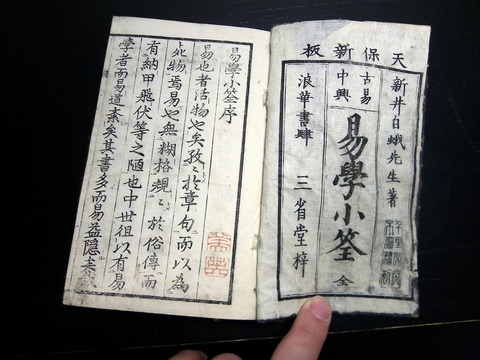 天保新板
新井白蛾先生著
古易
中興
易學小筌 全
浪華書肆 三省堂梓
易學小筌序
易也者活物也矣孜〻於章句而以為
死物焉易也無糊挌規〻於俗傳而
有納甲飛伏等之陋也中世徂以有易
學者而易道紊矣其書多而易益隱矣